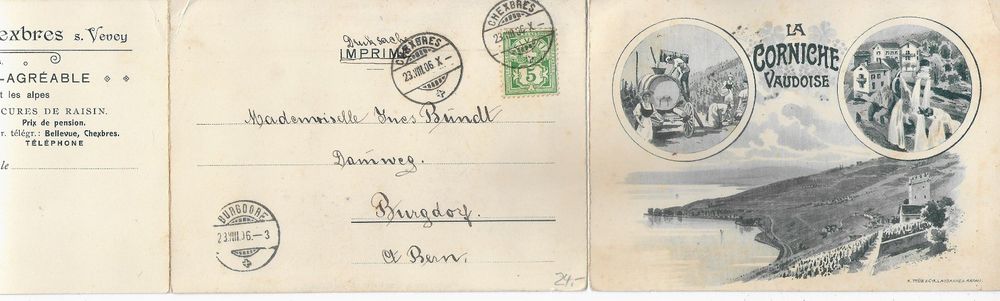 exbres s. Vevey
-AGRÉABLE
t les alpes
CURES DE RAISIN.
Prix de pension.
r. télégr.: Bellevue, Chexbres.
TÉLÉPHONE
le
Drucksache
IMPRIMÉ
CHEXBRES
23.VIII.06.X-
CHEXBRES
23.VIII.06.X-
5
Mademoiselle Ines Bündt
Dammweg.
Burgdorf.
Ct Bern.
BURGDORF
23.VIII.06.-3
24.-
LA
CORNICHE
VAUDOISE